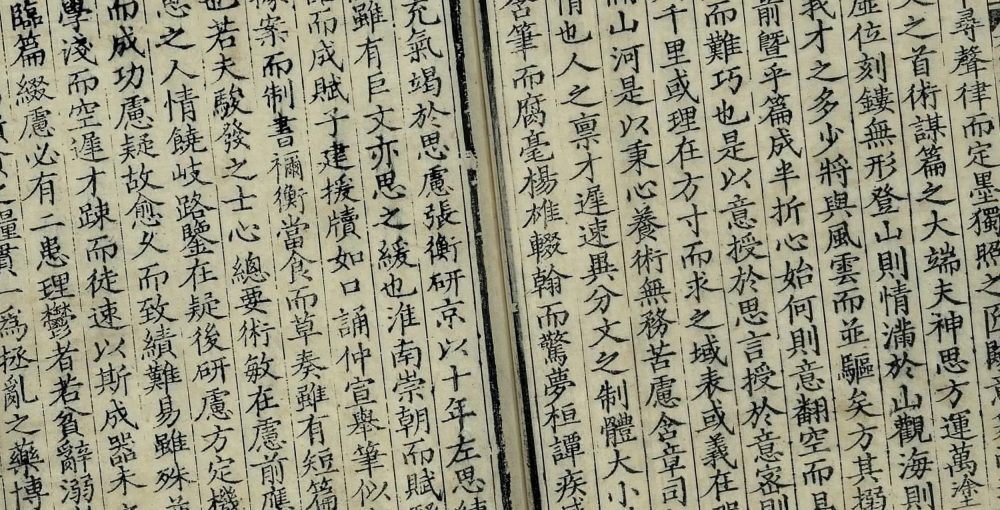 尋聲律而定墨獨照之匠闚意
文之首術謀篇之大端夫神思方運萬塗
虛位刻鏤無形登山則情滿於山觀海則
我才之多少將與風雲而並驅矣方其搦
前曁乎篇成半折心始何則意翻空而易
而難巧也是以意授於思言授於意密則
千里或理在方寸而求之域表或義在咫
而山河是以秉心養術無務苦慮含章司
情也人之禀才遲速異分文之制體大小
含筆而腐毫楊雄輟翰而驚夢桓譚疾感
充氣竭於思慮張衡研京以十年左思練
雖有巨文亦思之緩也淮南崇朝而賦騷
而成賦子建援牘如口誦仲宣舉筆似
據案而制書禰衡當食而草奏雖有短篇
也若夫駿發之士心總要術敏在慮前應
思之人情饒岐路鑒在疑後研慮方定機
而成功慮疑故愈久而致績難易雖殊並
學淺而空遲才踈而徒速以斯成器未
臨篇綴慮必有二患理鬱者若貧辭溺
之糧貫一爲極亂之藥博